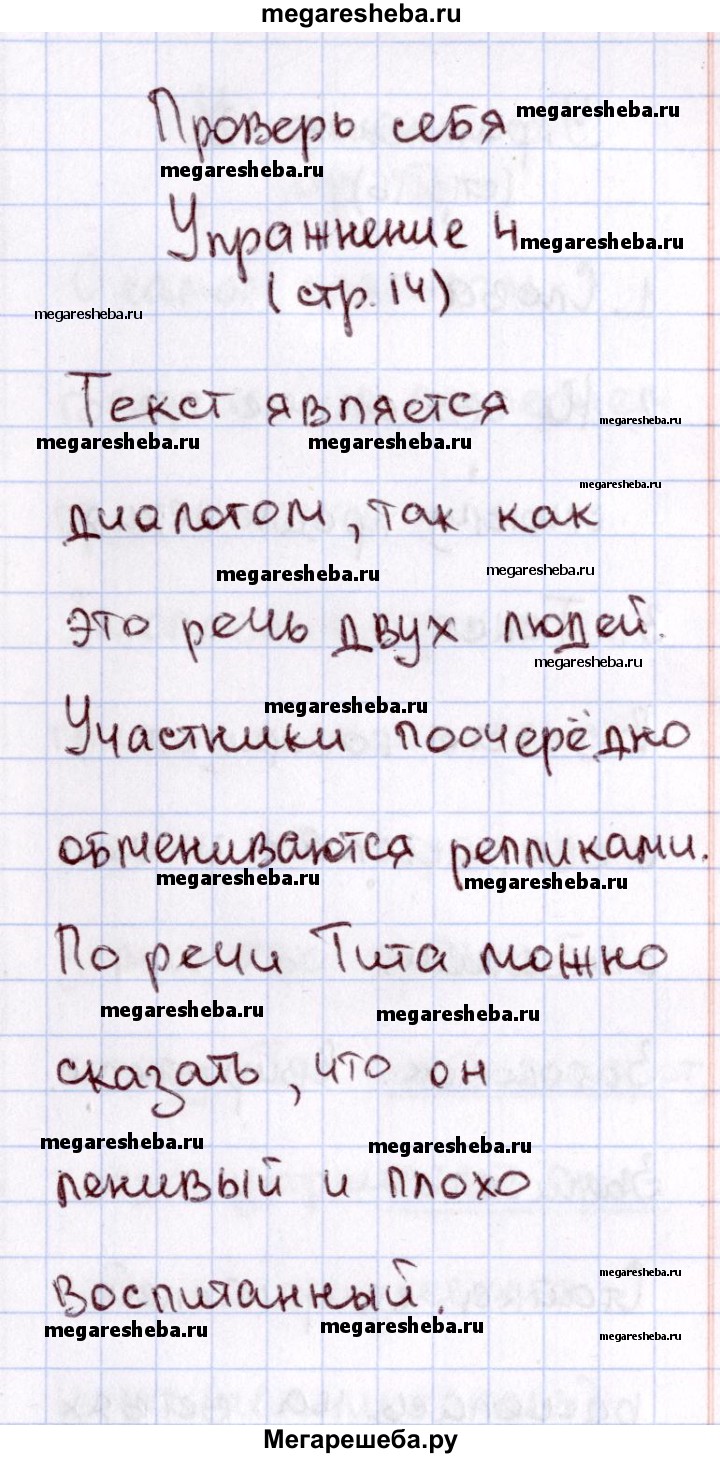 megaresheba.ru
Проверь себя megaresheba.ru
megaresheba.ru
Упражнение 4 megaresheba.ru
(стр. 14)
megaresheba.ru
Текст является
megaresheba.ru megaresheba.ru megaresheba.ru
megaresheba.ru
диалогом, так как
megaresheba.ru megaresheba.ru
это речь двух людей.
megaresheba.ru
megaresheba.ru
Участники поочерёдно
обмениваются репликами.
megaresheba.ru megaresheba.ru
По речи Тита можно
megaresheba.ru megaresheba.ru
сказать, что он
megaresheba.ru megaresheba.ru
ленивый и плохо
megaresheba.ru
воспитанный.
megaresheba.ru megaresheba.ru megaresheba.ru
Мегарешеба.ру